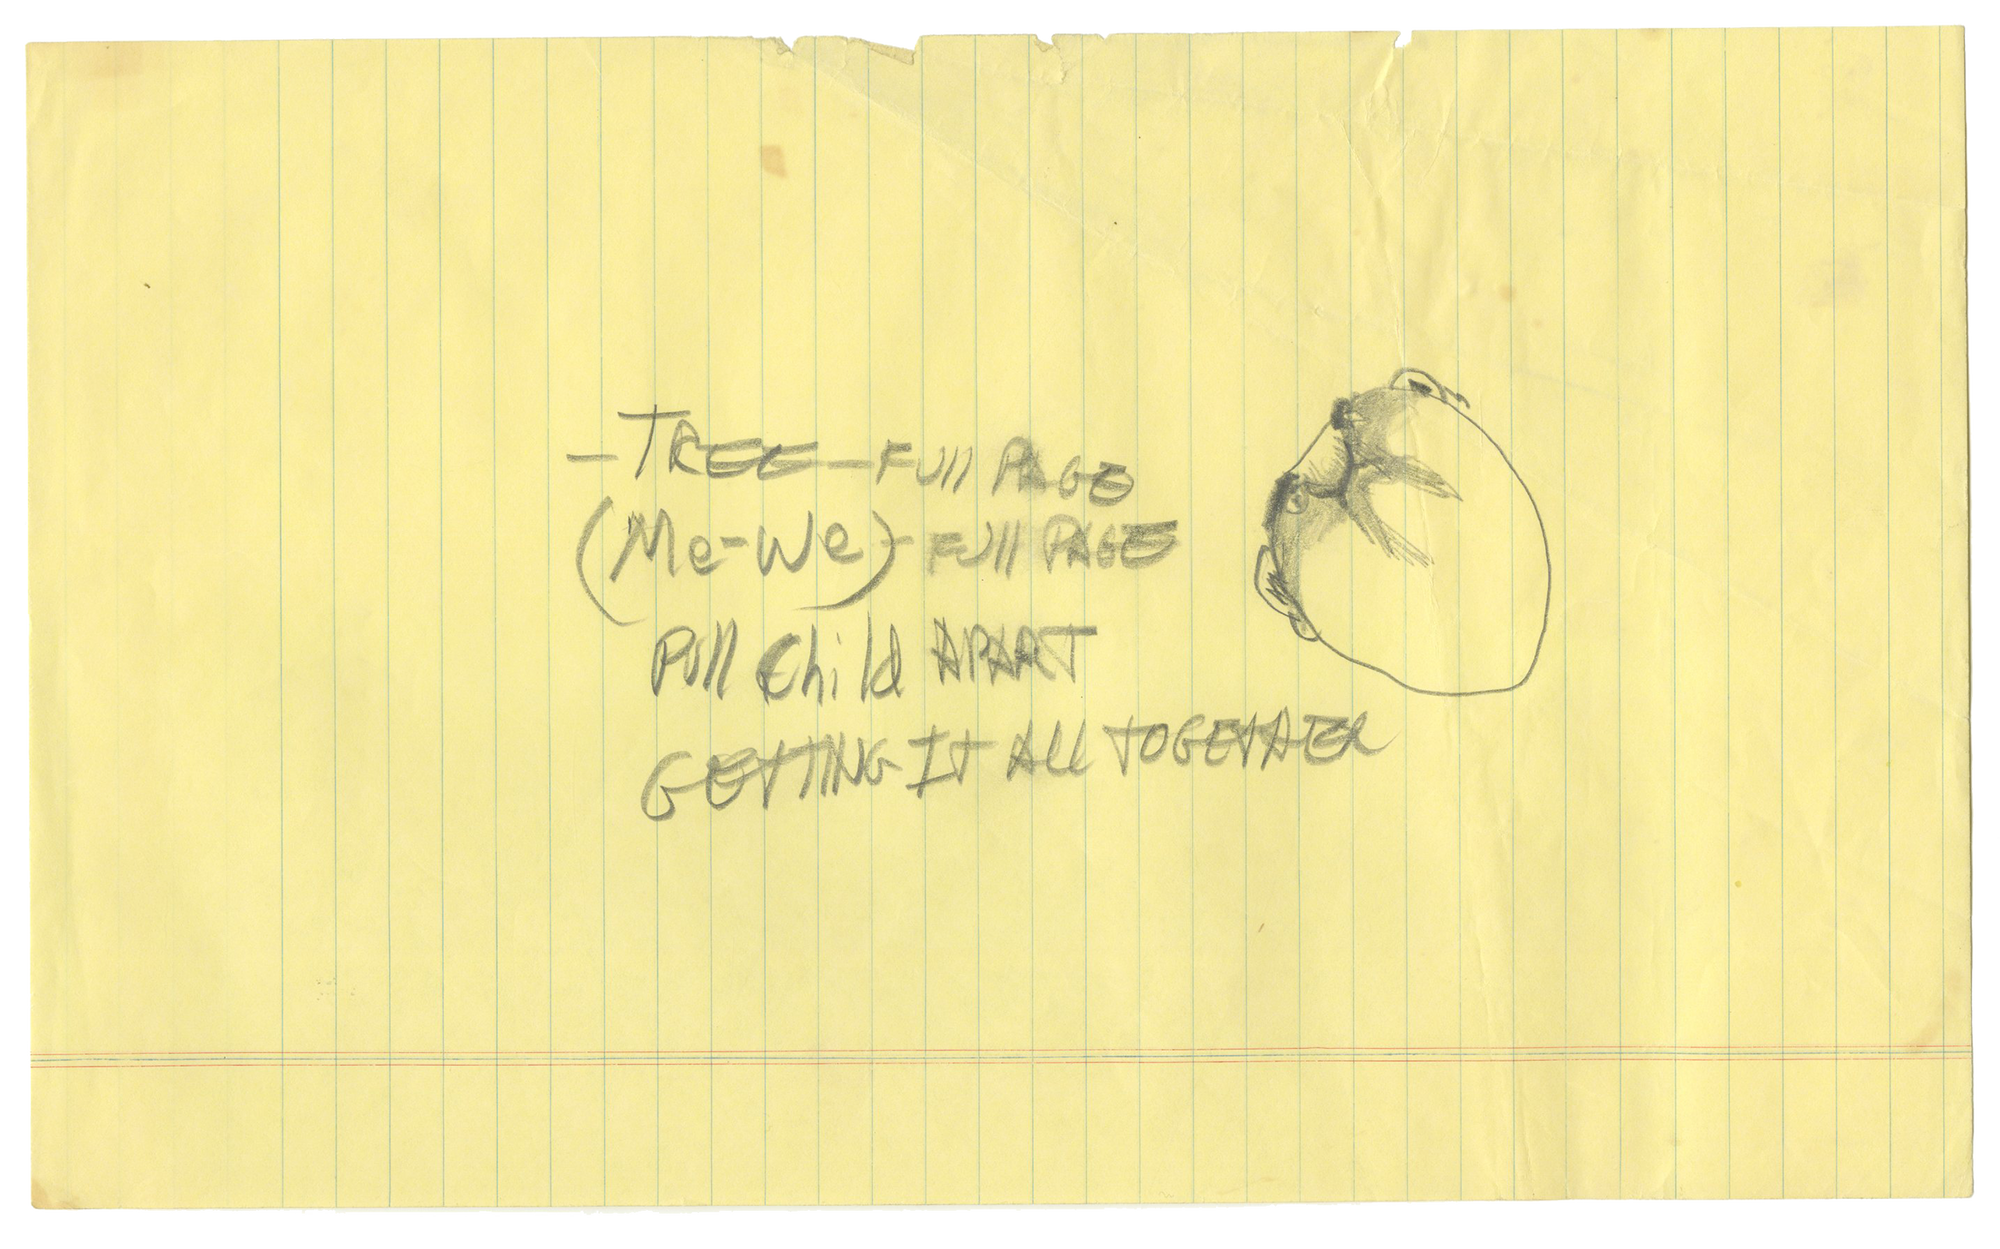 - TREE - Full PAGE
(Me-We) - Full PAGE
Pull Child APART
GETTING It All TOGETHER